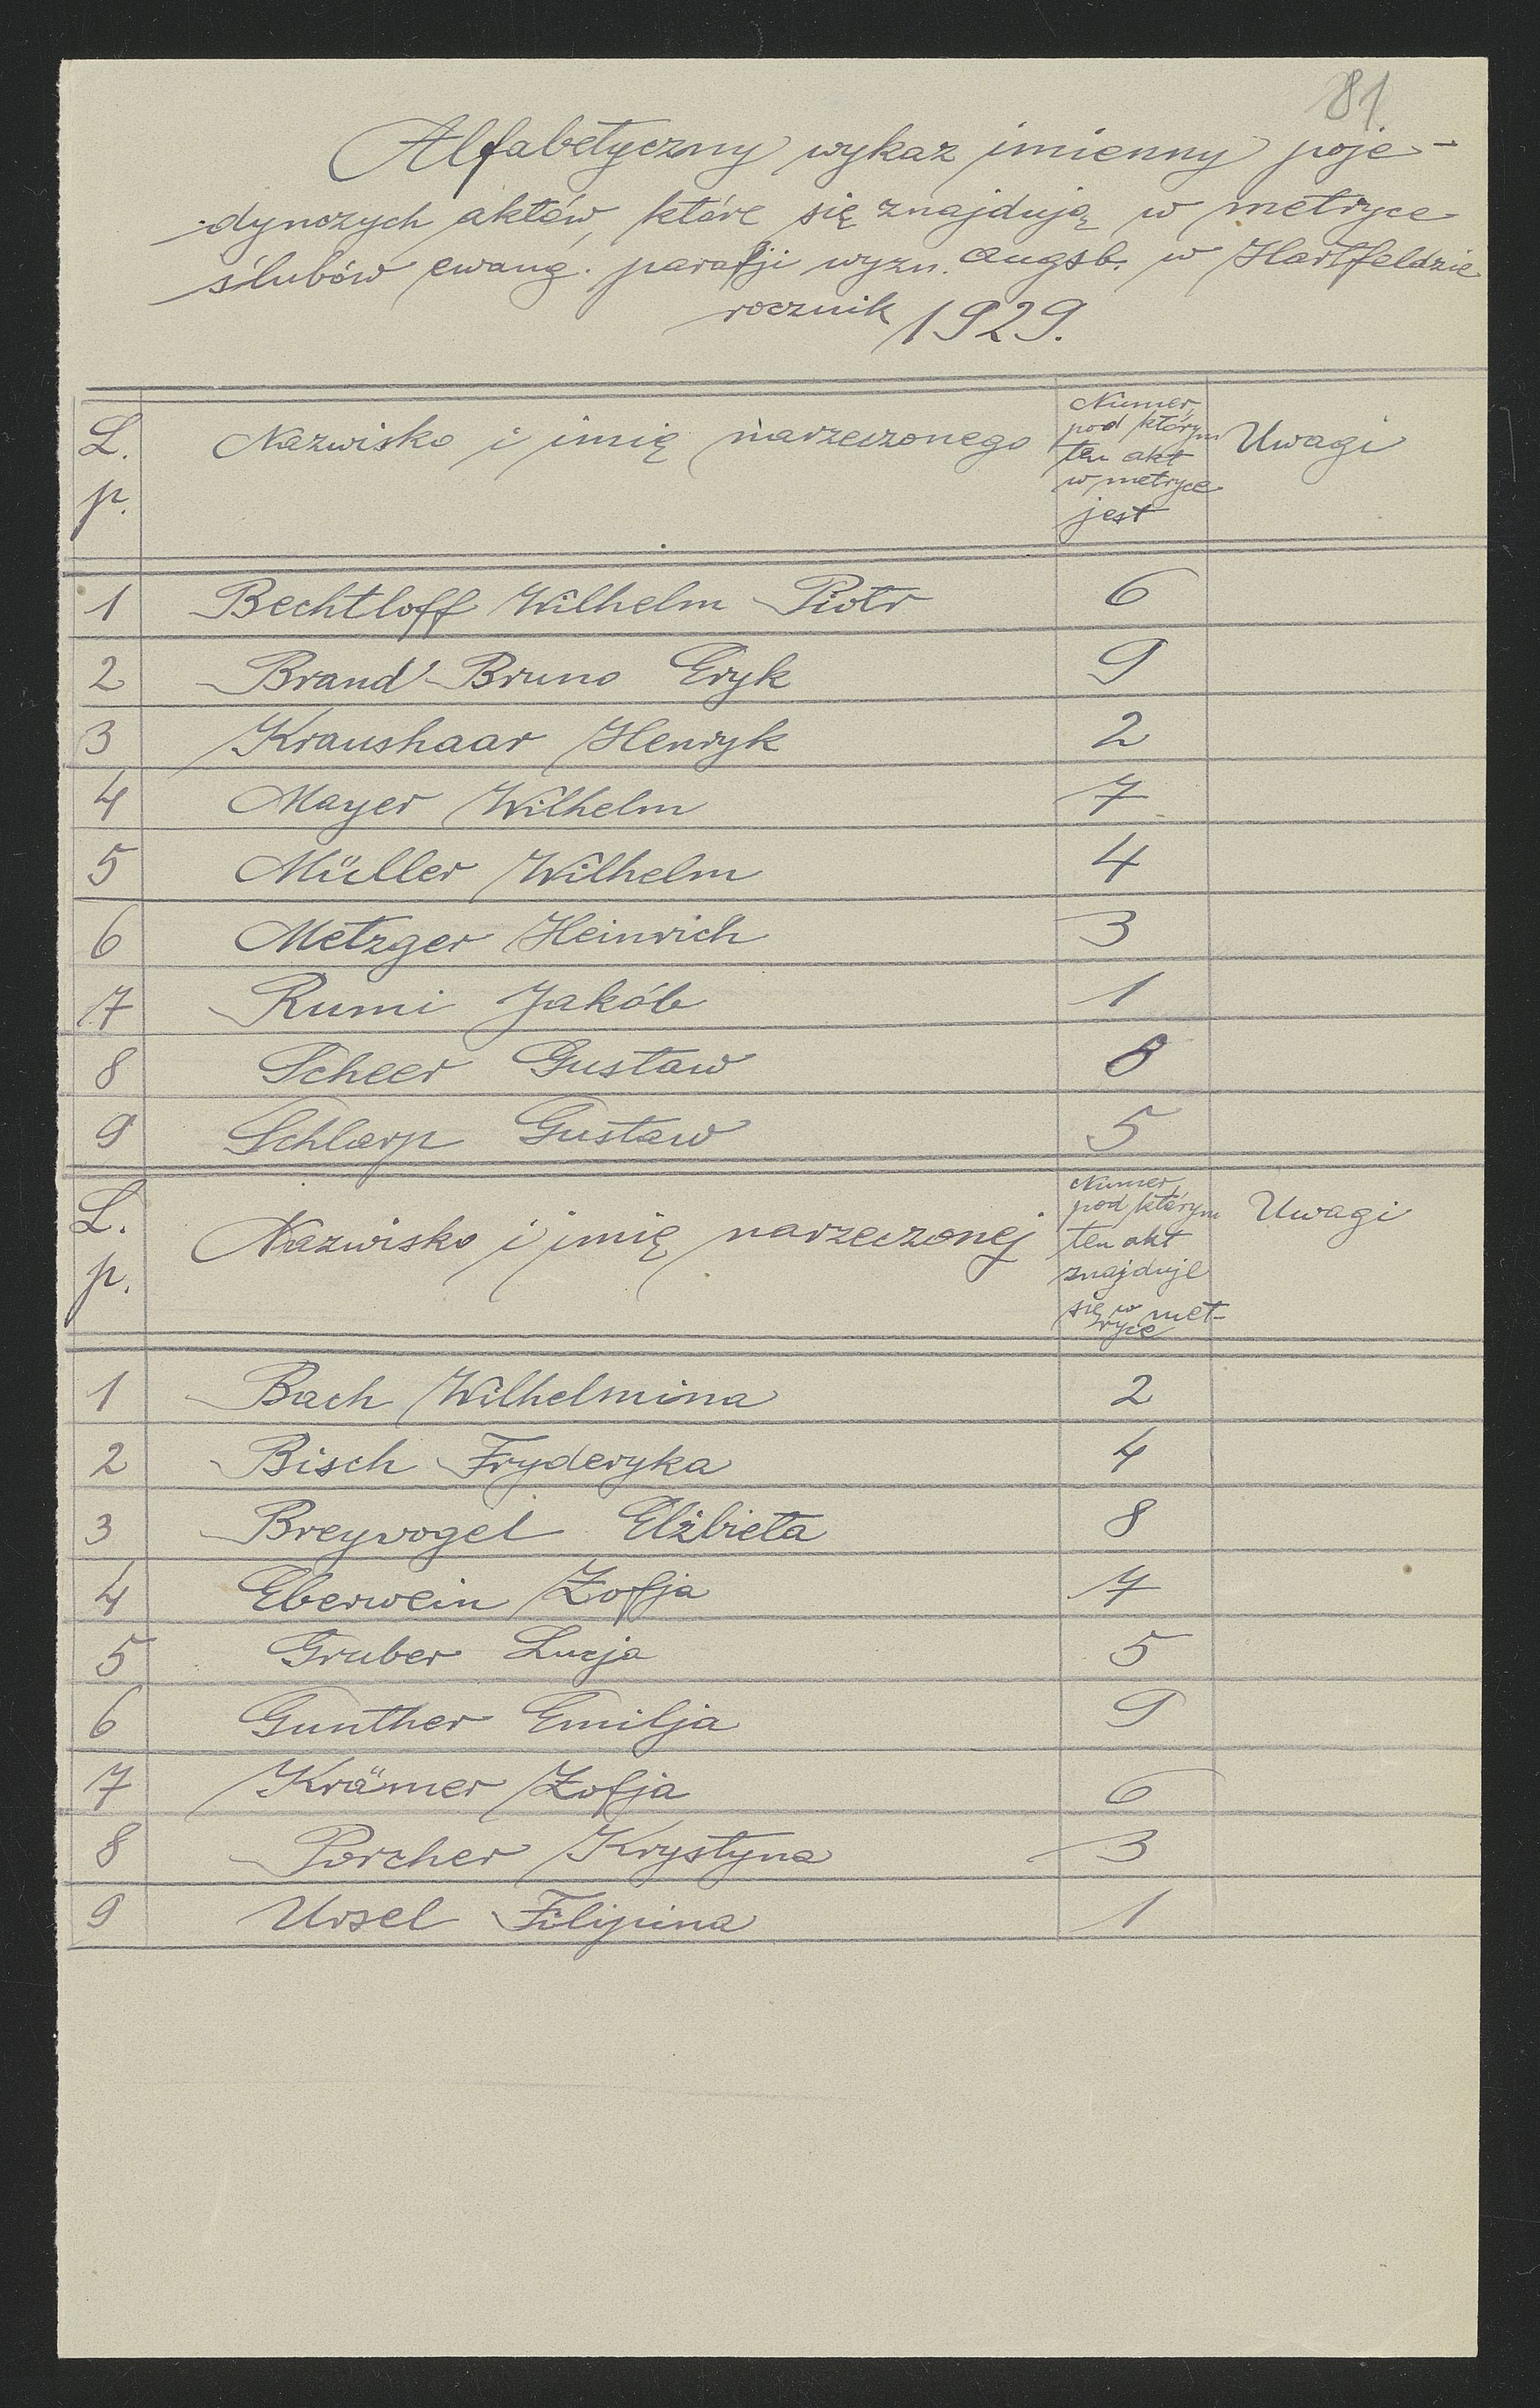 81
Alfabetyczny wykaz imienny poje-
dynczych aktów, które się znajdują w metryce
ślubów ewang. parafji wyzn. augsb. w Hartfeldzie
rocznik 1929.
L. p. Nazwisko i imię narzeczonego Numer, pod którym ten akt w metryce jest Uwagi
1 Bechtloff Wilhelm Piotr 6
2 Brand Bruno Eryk 9
3 Kraushaar Henryk 2
4 Mayer Wilhelm 7
5 Müller Wilhelm 4
6 Metzger Heinrich 3
7 Rumi Jakób 1
8 Scheer Gustaw 8
9 Schlarp Gustaw 5
L. p. Nazwisko i imię narzeczonej Numer, pod którym ten akt znajduje się w met- ryce Uwagi
1 Bach Wilhelmina 2
2 Bisch Fryderyka 4
3 Breyvogel Elżbieta 8
4 Eberwein Zofja 7
5 Gruber Lucja 5
6 Gunther Emilja 9
7 Krämer Zofja 6
8 Porcher Krystyna 3
9 Ursel Filipina 1